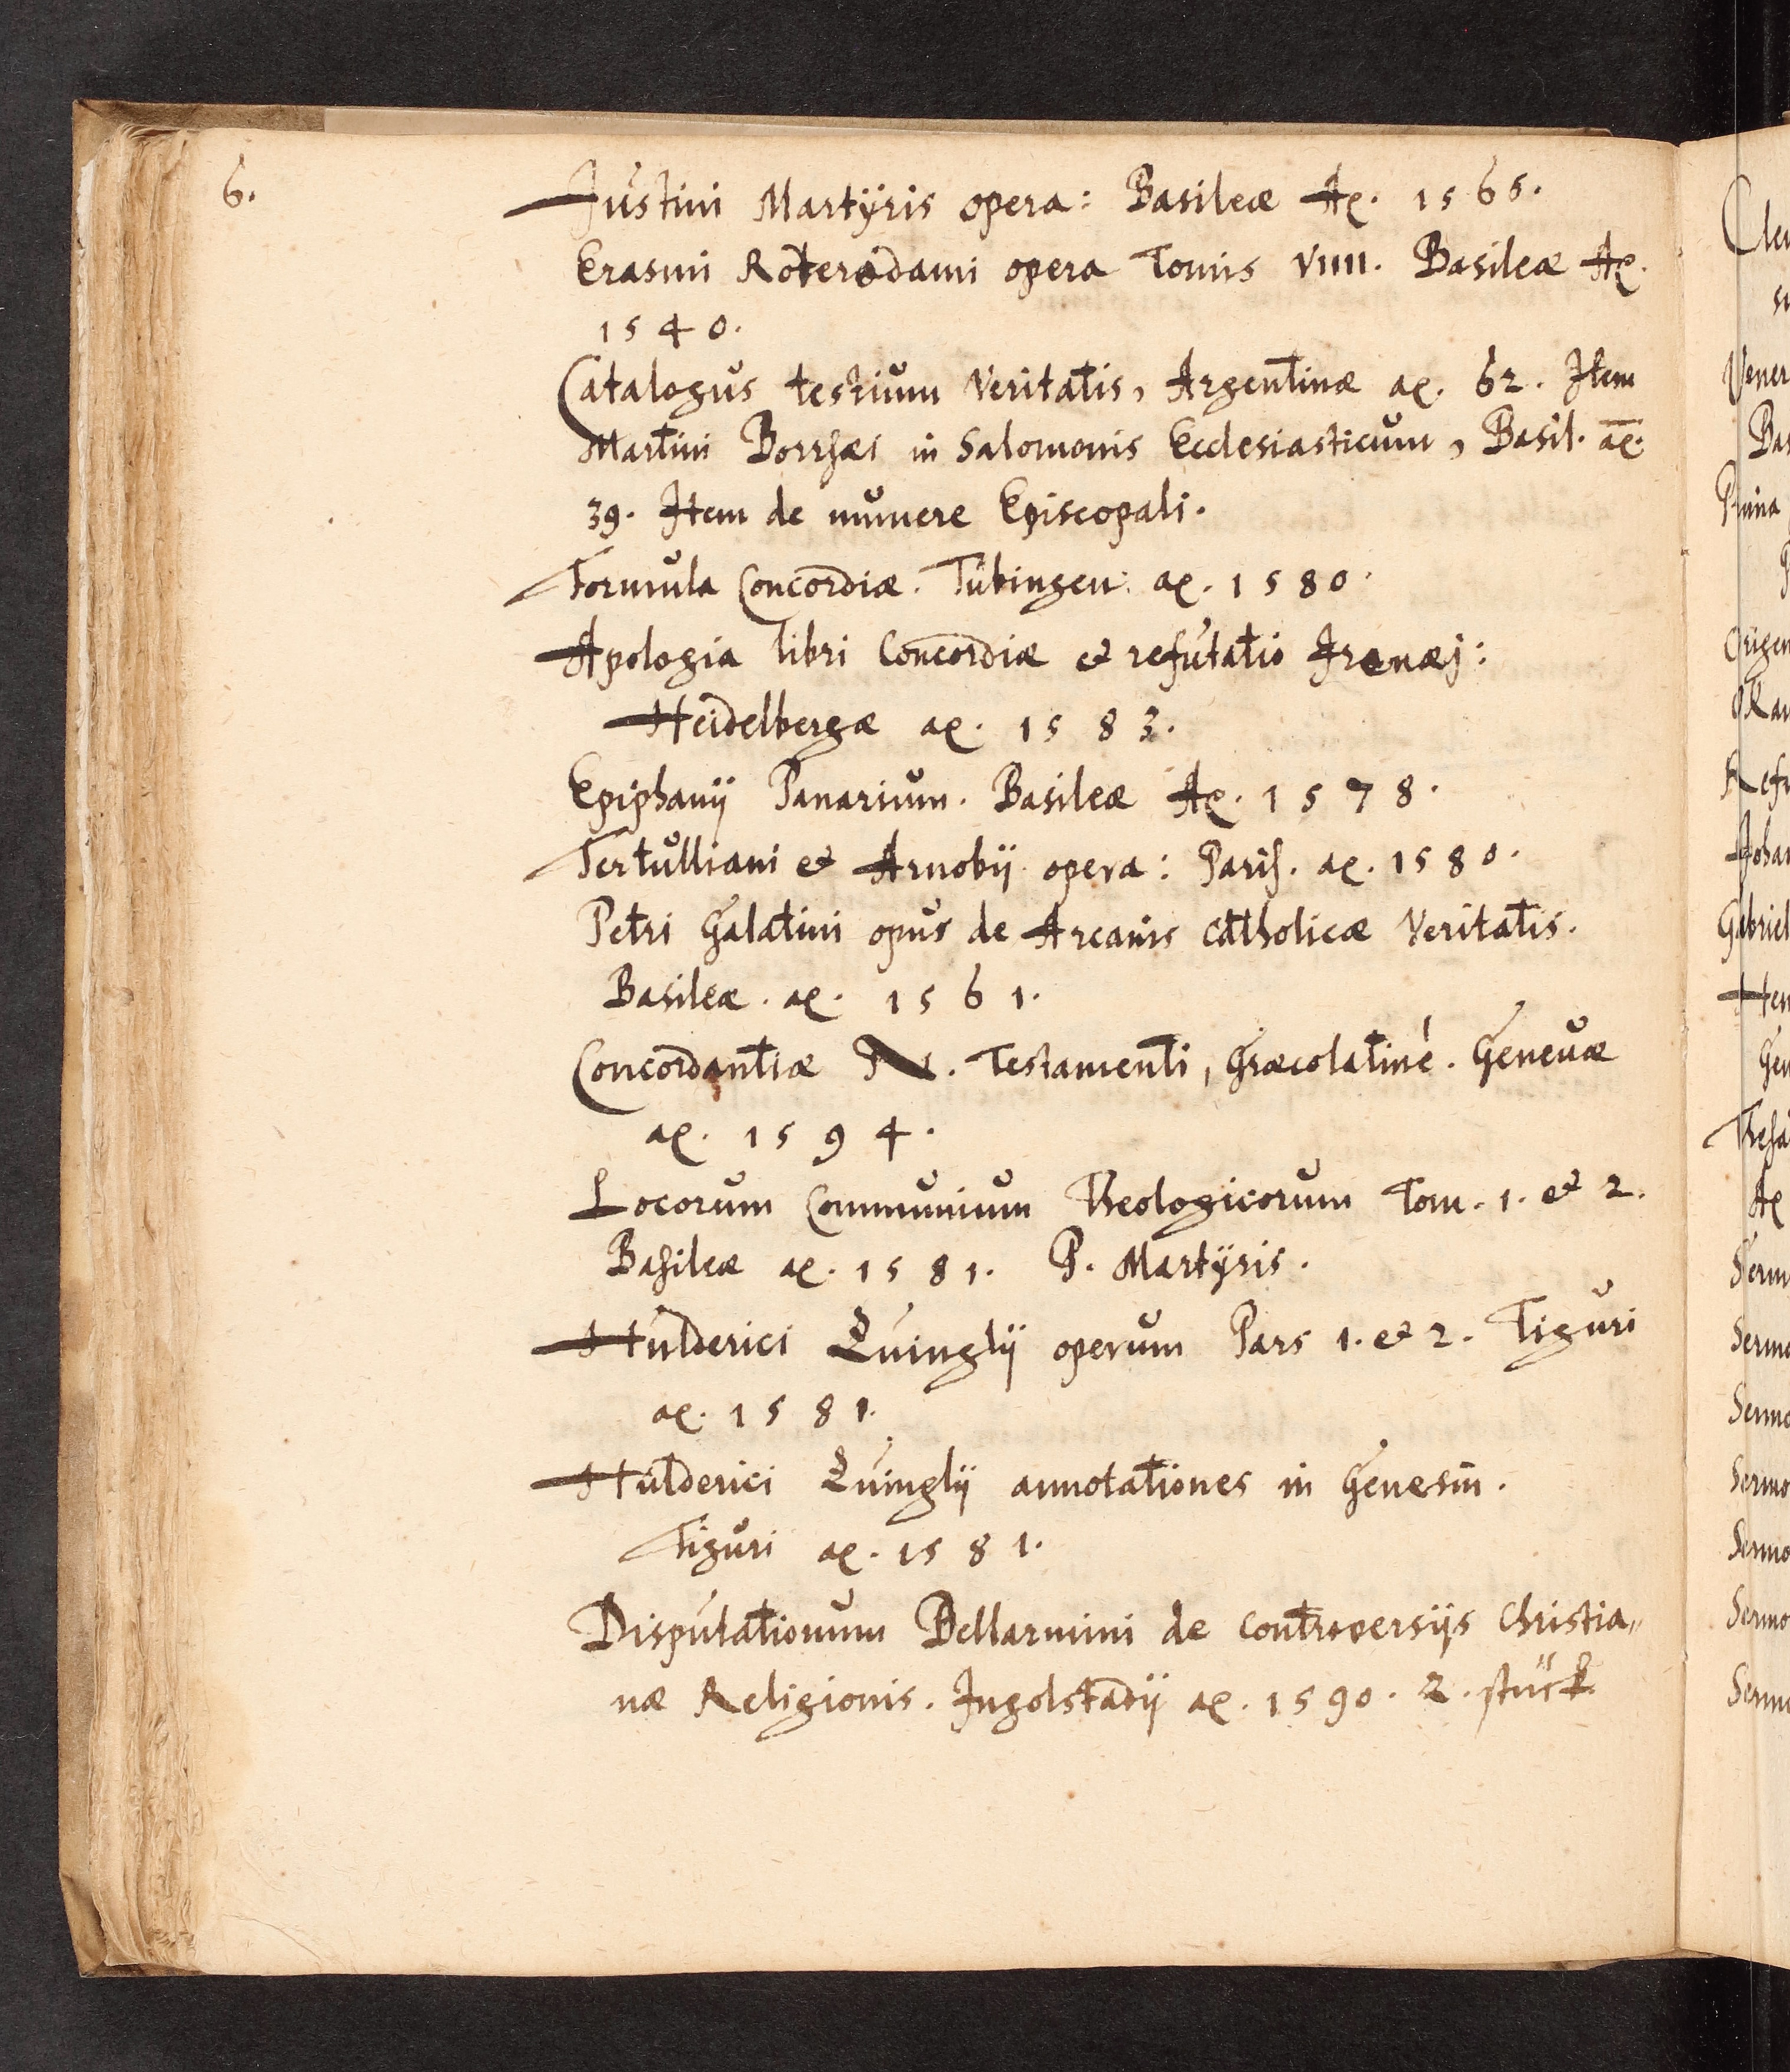 6.
Justini Martÿris opera: Basileæ Aº. 1565.
Erasmi Roterodami opera Tomis VIIII. Basileæ Aº.
1540.
Catalogus testium Veritatis, Argentinæ aº. 62. Item
Martini Borrhæi in Salomonis Ecclesiasticum, Basil. aº.
39. Item de munere Episcopali.
Formula Concordiæ. Tübingen: aº. 1580.
Apologia libri Concordiæ et refutatio Irenæj:
Heidelbergæ aº. 1583.
Epiphanij Panarium. Basileæ Aº. 1578.
Tertulliani et Arnobij opera: Paris. aº. 1580.
Petri Galatini opus de Arcanis catholicæ Veritatis.
Basileæ. aº. 1561.
Concordantiæ N. Testamenti, Græcolatiné. Genevæ
aº. 1594.
Locorum Communium Theologicorum Tom. 1. et 2.
Basileæ aº. 1581. P. Martÿris.
Hulderici Zuinglij operum Pars 1. et 2. Tiguri
aº. 1581.
Hulderici Zuinglij annotationes in Genesin.
Tiguri aº. 1581.
Disputationum Bellarmini de controversijs Christia„
næ Religionis. Ingolstadij aº. 1590. 2. stück